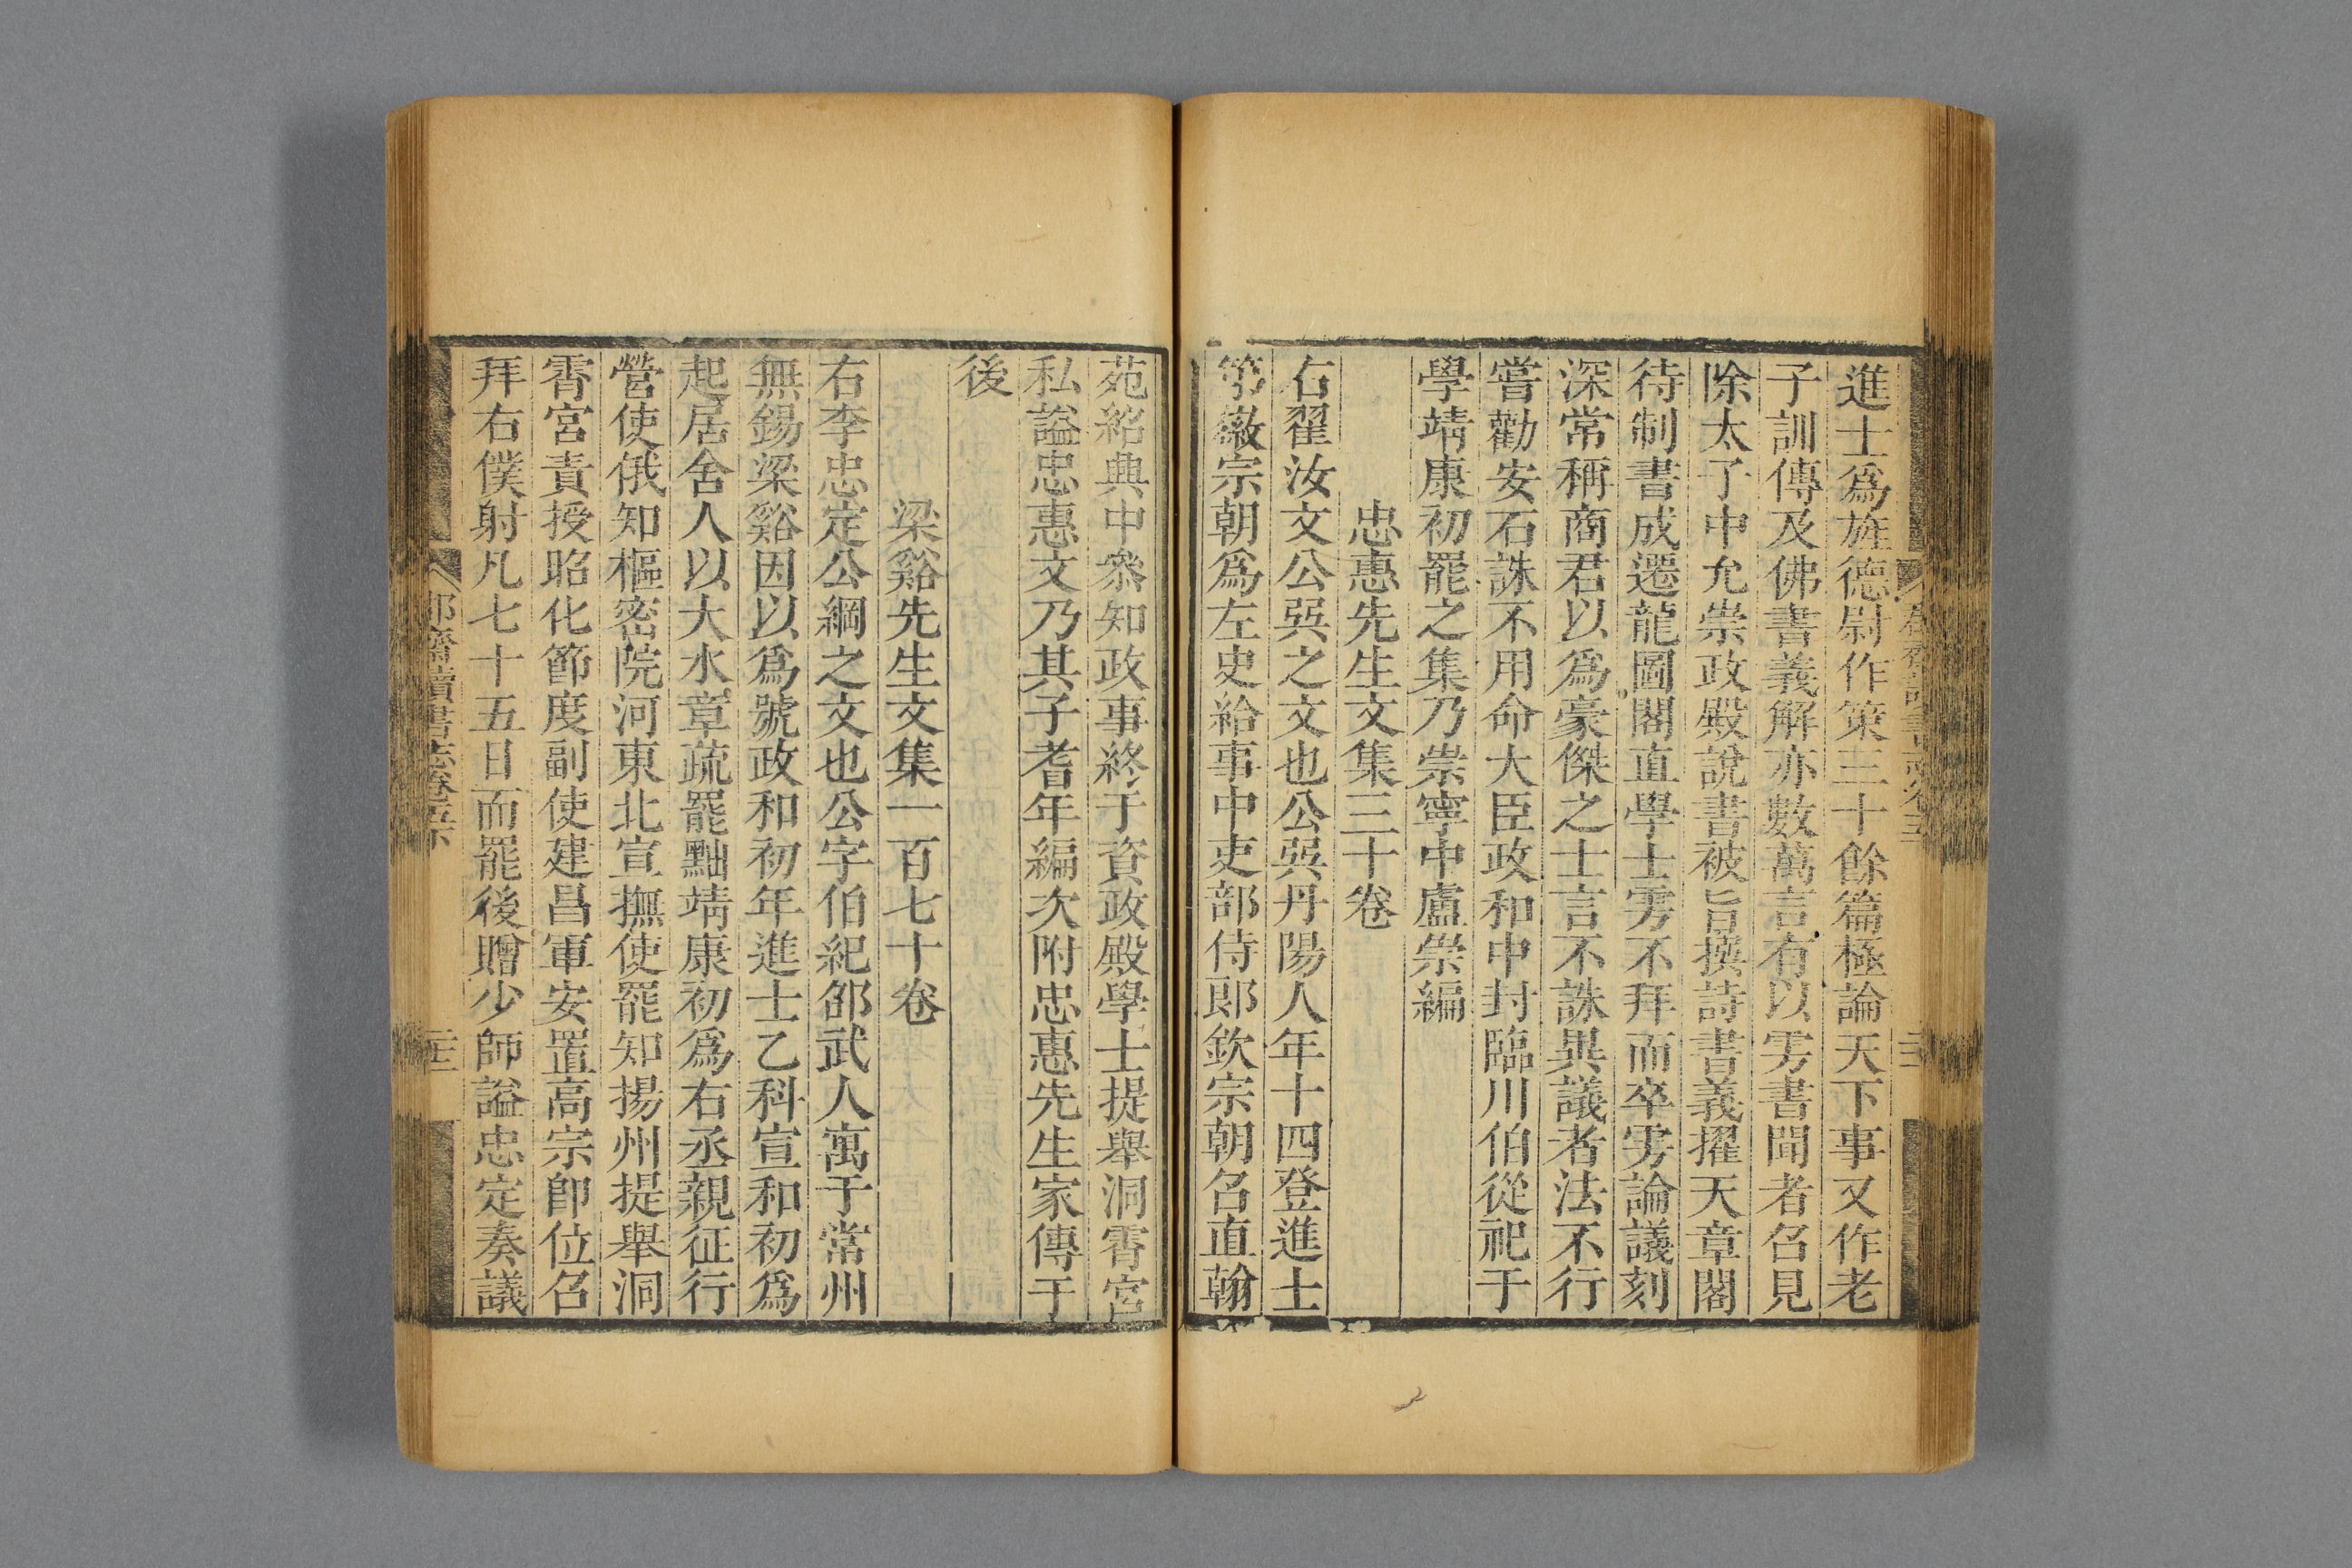 進士爲旌德尉作策三十餘篇極論天下事又作老
子訓傳及佛書義解亦數萬言有以雱書聞者召見
除太子中允崇政殿說書被旨撰詩書義擢天章閣
待制書成遷龍圖閣直學士雱不拜而卒雱論議刻
深常稱商君以爲豪傑之士言不誅異議者法不行
嘗勸安石誅不用命大臣政和中封臨川伯從祀于
學靖康初罷之集乃崇寧中盧崇編
忠惠先生文集三十卷
右翟汝文公巽之文也公巽丹陽人年十四登進士
第徽宗朝爲左史給事中吏部侍郎欽宗朝召直翰
苑紹興中叅知政事終于資政殿學士提舉洞霄宮
私謚忠惠文乃其子耆年編次附忠惠先生家傳于
後
梁谿先生文集一百七十卷
右李忠定公綱之文也公字伯紀邵武人寓于常州
無錫梁谿因以爲號政和初年進士乙科宣和初爲
起居舍人以大水章疏罷黜靖康初爲右丞親征行
營使俄知樞密院河東北宣撫使罷知揚州提舉洞
霄宮責授昭化節度副使建昌軍安置高宗即位召
拜右僕射凡七十五日而罷後贈少師謚忠定奏議
郡齋讀書志卷五下
二十二